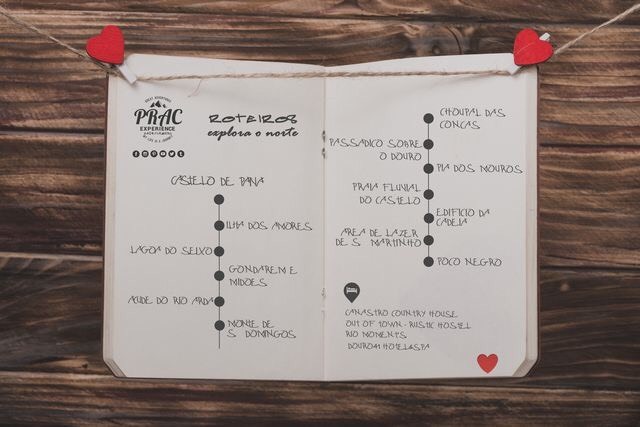 GREAT ADVENTURES
PRAC
EXPERIENCE
ROTEIROS
explora o norte
CASTELO DE PAIVA
ILHA DOS AMORES
LAGOA DO SEIXO
GONDAREM E
MIDÕES
AÇUDE DO RIO ARDA
MONTE DE
S. DOMINGOS
CHOUPAL DAS
CONCAS
PASSADIÇO SOBRE
O DOURO
PIA DOS MOUROS
PRAIA FLUVIAL
DO CASTELO
EDIFÍCIO DA
CADEIA
ÁREA DE LAZER
DE S. MARTINHO
POÇO NEGRO
CANASTRO COUNTRY HOUSE
OUT OF TOWN - RUSTIC HOSTEL
RIO MOMENTS
DOURO41 HOTEL&SPA